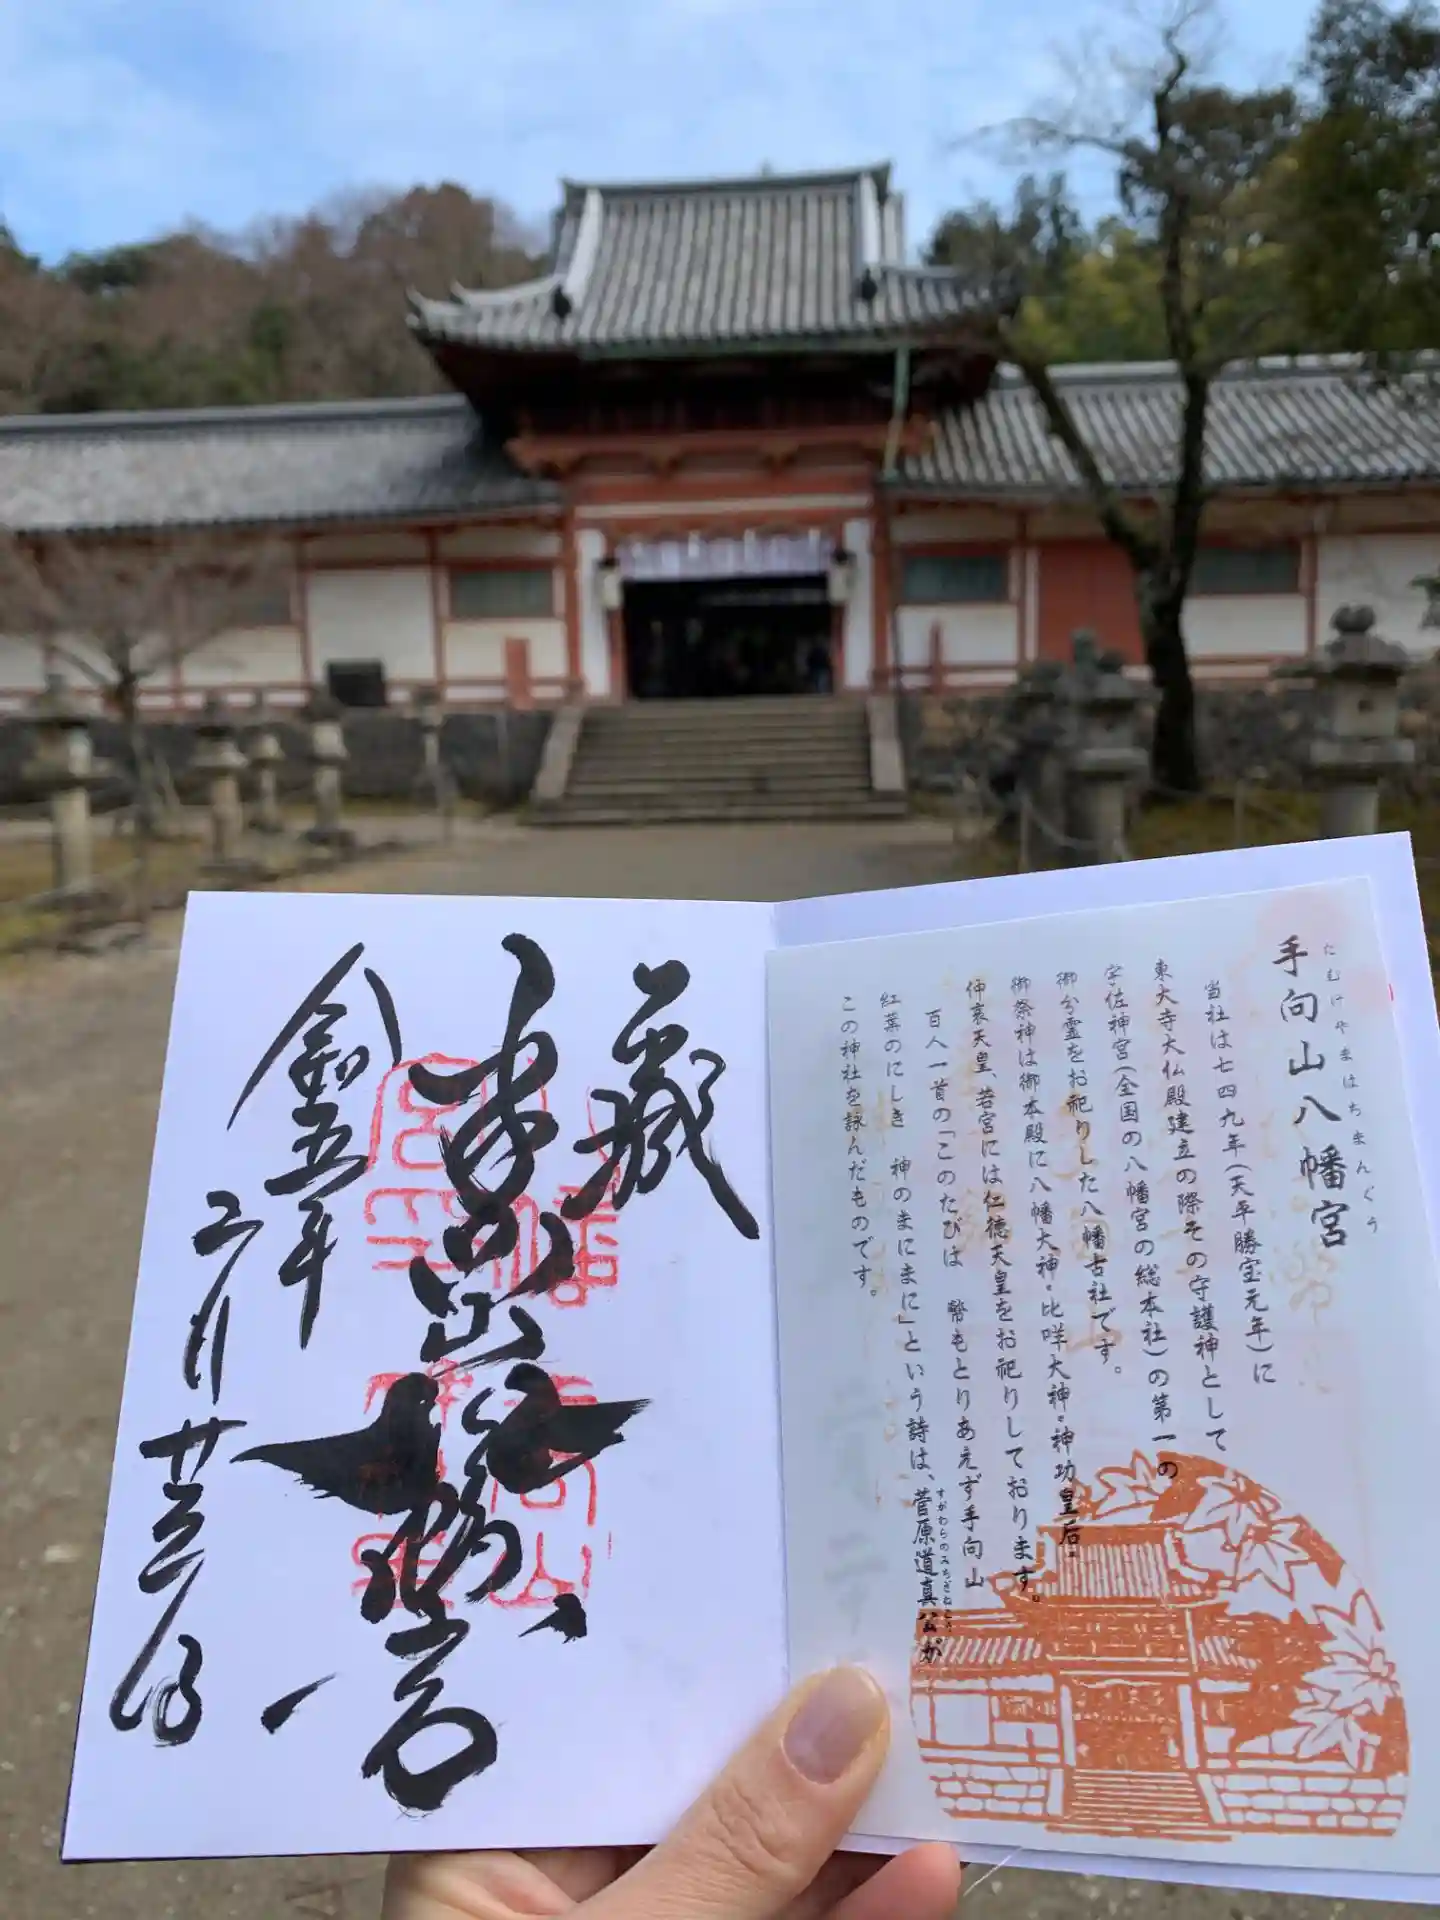 手向山八幡宮
たむけやまはちまんぐう
当社は七四九年(天平勝宝元年)に
東大寺大仏殿建立の際その守護神として
宇佐神宮(全国の八幡宮の総本社)の第一の
御分霊をお祀りした八幡古社です。
御祭神は御本殿に八幡大神・比咩大神・神功皇后・
仲哀天皇、若宮には仁徳天皇をお祀りしております。
百人一首の「このたびは 幣もとりあえず手向山
紅葉のにしき 神のまにまに」という詩は、菅原道真公が
すがわらのみちざねこう
この神社を詠んだものです。
手向山八幡宮
五年
二月廿三日